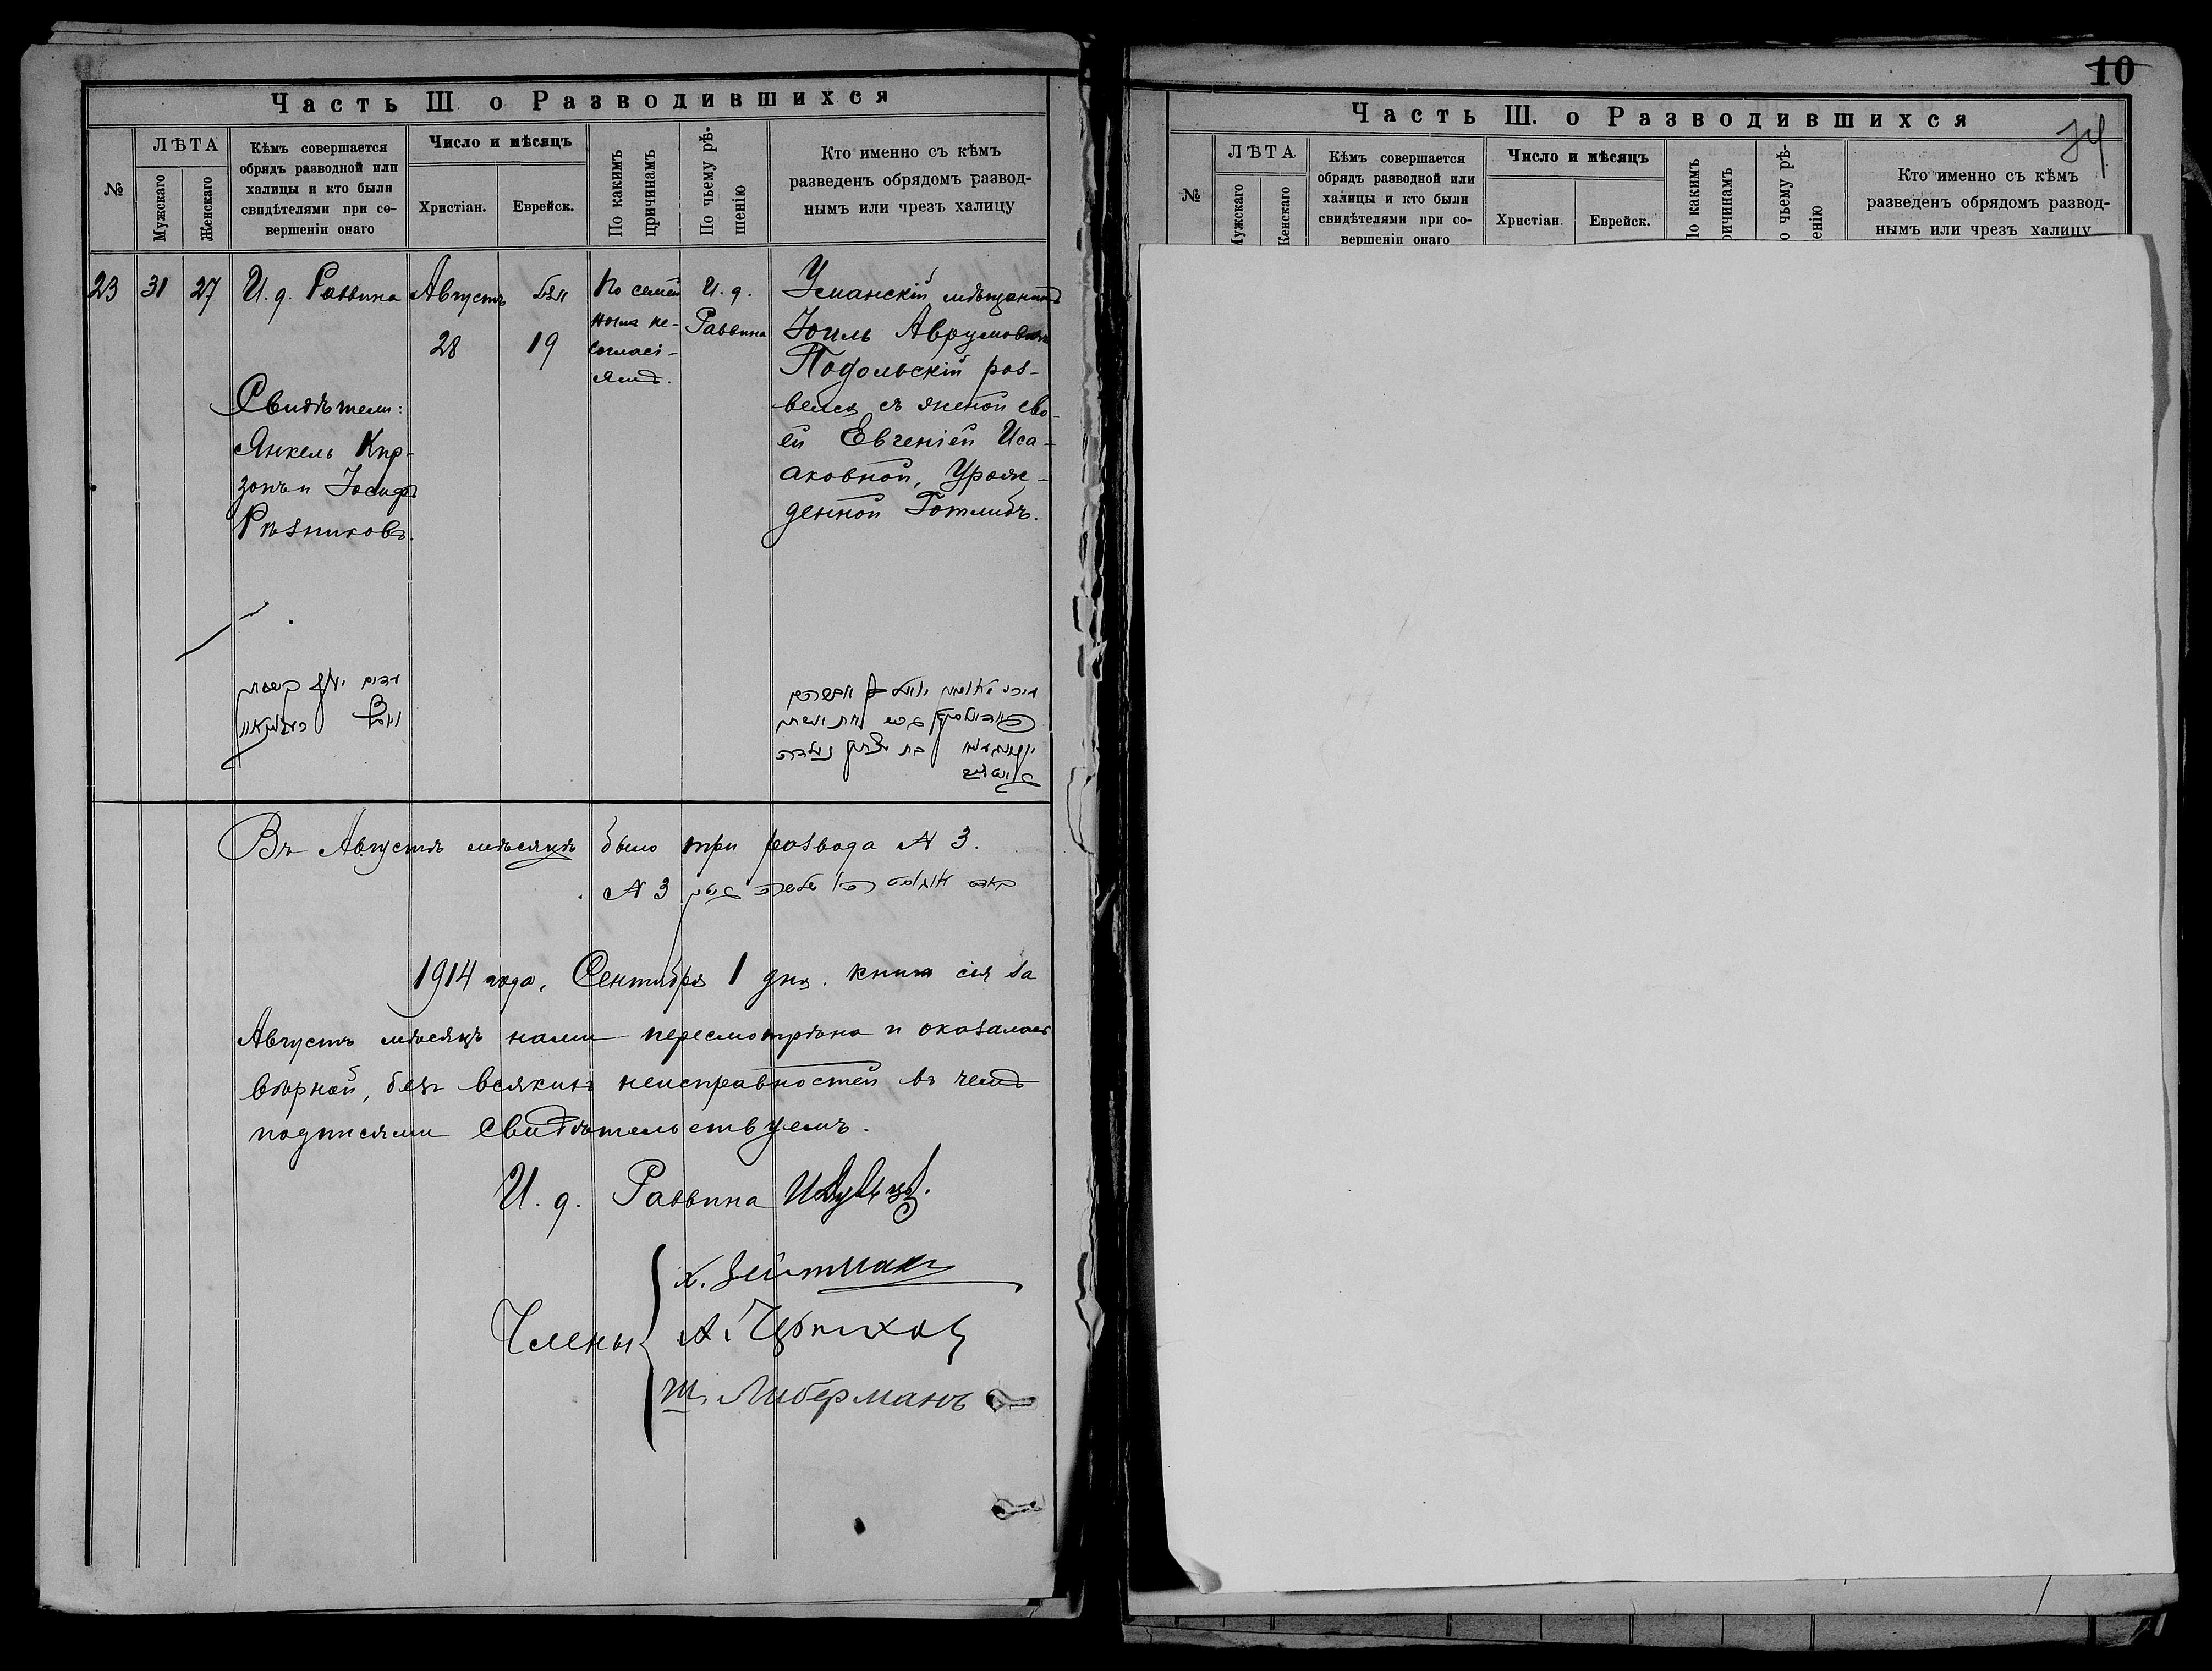 Часть III о Разводившихся
№
ЛѢТА
Мужскаго
Женскаго
Кѣмъ совершается
обрядъ разводной или
халицы и кто были
свидѣтелями при со-
вершеніи онаго
Число и мѣсяцъ
Христіан.
Еврейск.
По какимъ
причинамъ
По чьему рѣ-
шенію
Кто именно съ кѣмъ
разведенъ обрядомъ развод-
нымъ или чрезъ халицу
23
31
27
И. д. Раввина
Свидѣтели:
Янкель Кир-
зонъ и Іосифъ
Рѣзниковъ.
Августъ
28
אלול
19
По семей
нымъ не-
согласі-
ямъ.
И. д.
Раввина
Уманскій мѣщанинъ
Іоиль Аврумовъ
Подольскій раз-
велся съ женой сво-
ей Евгеніей Иса-
аковной, Урож-
денной Готлибъ.
Въ Августѣ мѣсяцѣ было три развода № 3.
№ 3
1914 года, Сентября 1 дня. книга сія за
Августъ мѣсяцъ нами пересмотрѣна и оказалась
вѣрной, безъ всякихъ неисправностей въ чемъ
подписями свидѣтельствуемъ.
И. д. Раввина
Члены
х. Зейтман
А.
Ш. Либерманъ
10
Часть III. о Разводившихся
74
№
ЛѢТА
Мужскаго
Женскаго
Кѣмъ совершается
обрядъ разводной или
халицы и кто были
свидѣтелями при со-
вершеніи онаго
Число и мѣсяцъ
Христіан.
Еврейск.
По какимъ
ричинамъ
о чьему рѣ-
енію
Кто именно съ кѣмъ
разведенъ обрядомъ развод-
нымъ или чрезъ халицу